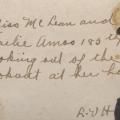 iss McLean and
arlie Amos 183
ooking out of the
at her ho
R.V.H